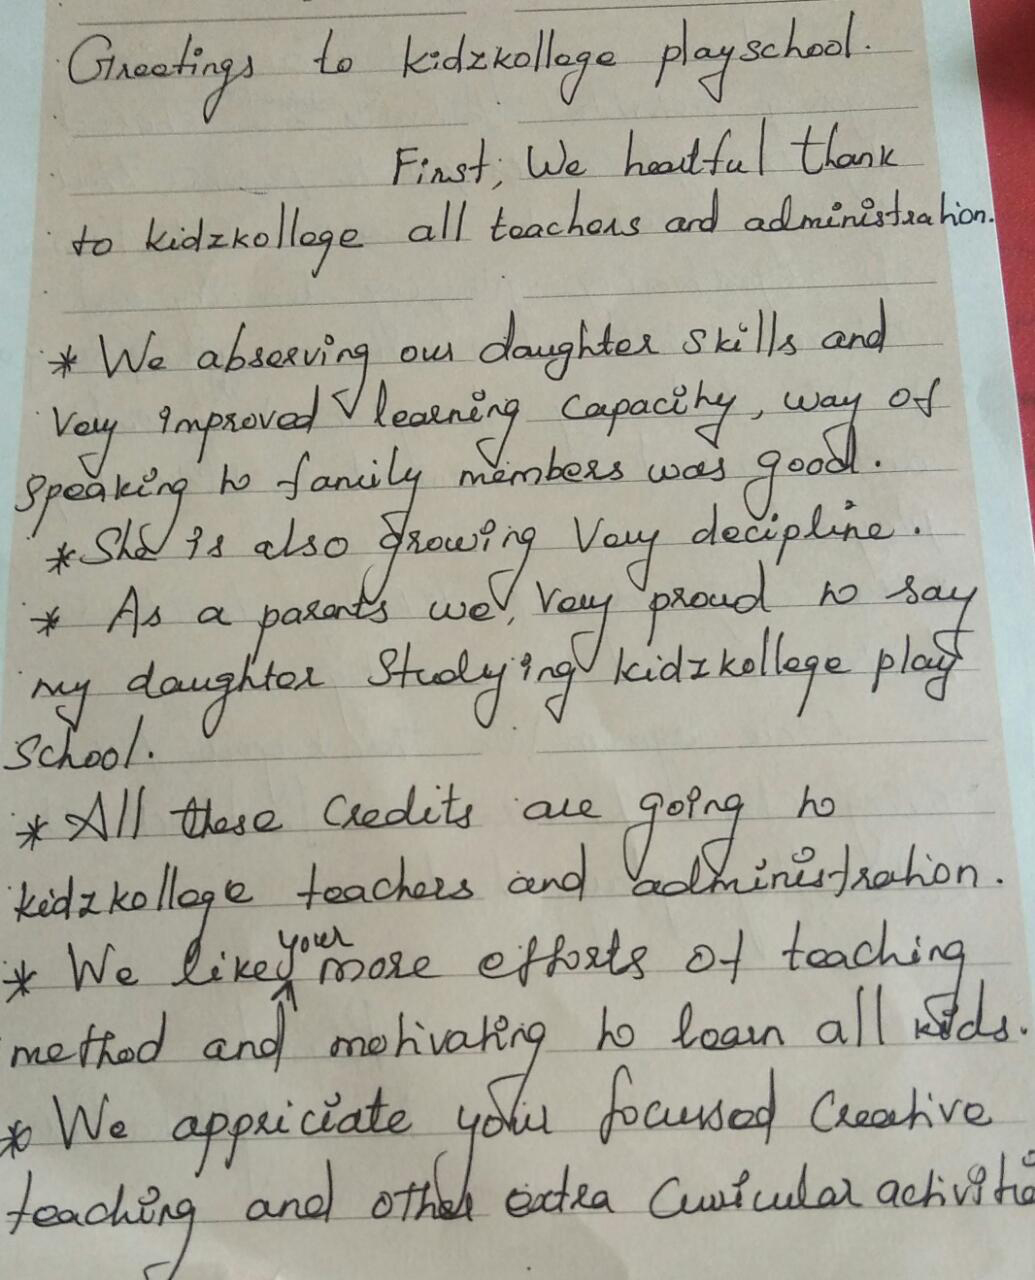 Greetings to kidzkollege playschool.
First, We heartful thank
to kidzkollege all teachers and administration.
* We abserving our daughter skills and
Very improved learning capacity, way of
speaking to family members was good.
* She is also growing Very decipline.
* As a parents we, Very proud to say
my daughter Studying kidzkollege play
School.
* All these Credits are going to
kidzkollege teachers and administration.
* We like your more efforts of teaching
method and motivating to learn all kids.
* We appriciate your focussed Creative
teaching and other extra Curricular activitie